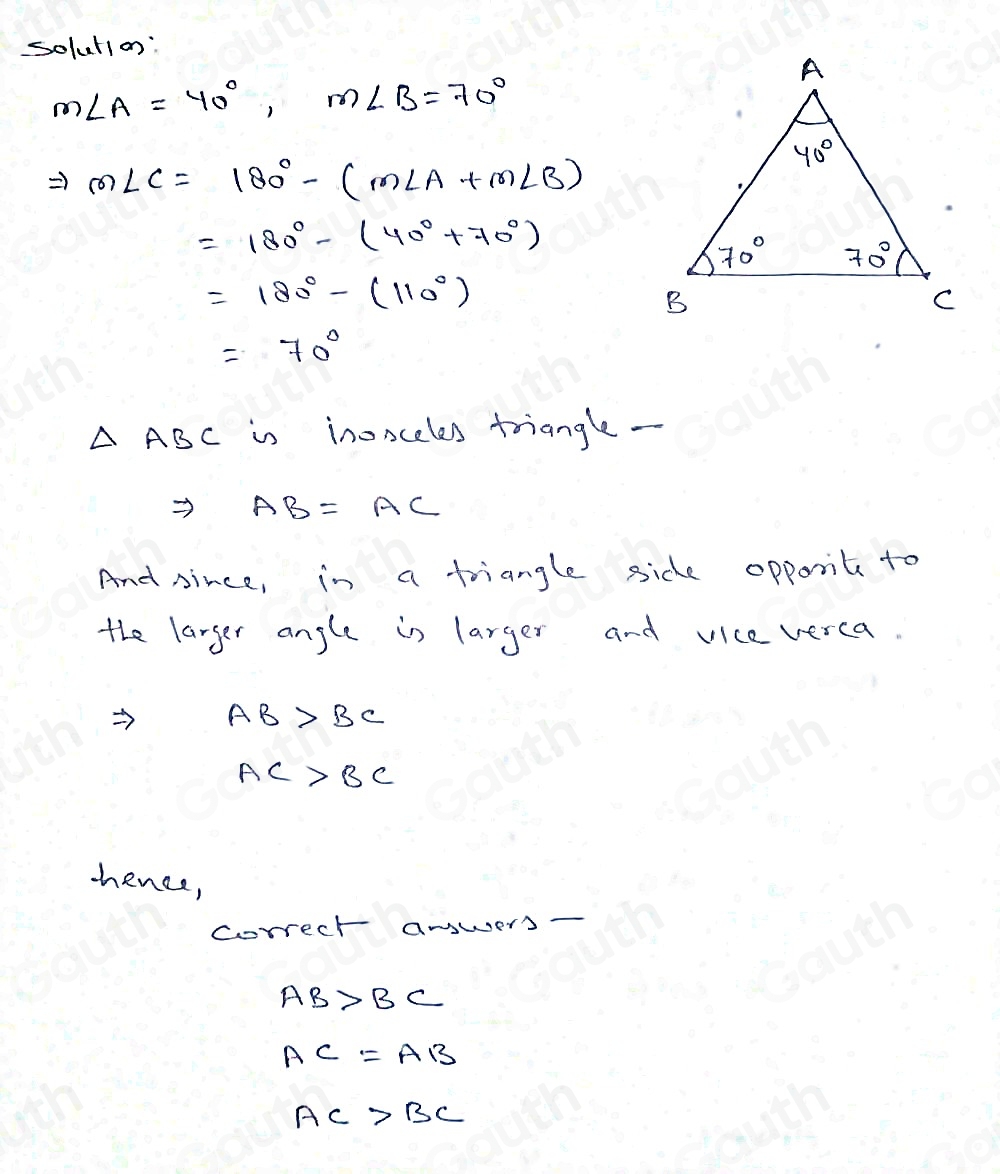 Solution:
m∠A = 40°, m∠B = 70°
⇒ m∠C = 180° - (m∠A + m∠B)
= 180° - (40° + 70°)
= 180° - (110°)
= 70°
A
40°
70° 70°
B C
Δ ABC is isosceles triangle —
⇒ AB = AC
And since, in a triangle side opposite to
the larger angle is larger and vice verca.
⇒ AB > BC
AC > BC
hence,
correct answers —
AB > BC
AC = AB
AC > BC